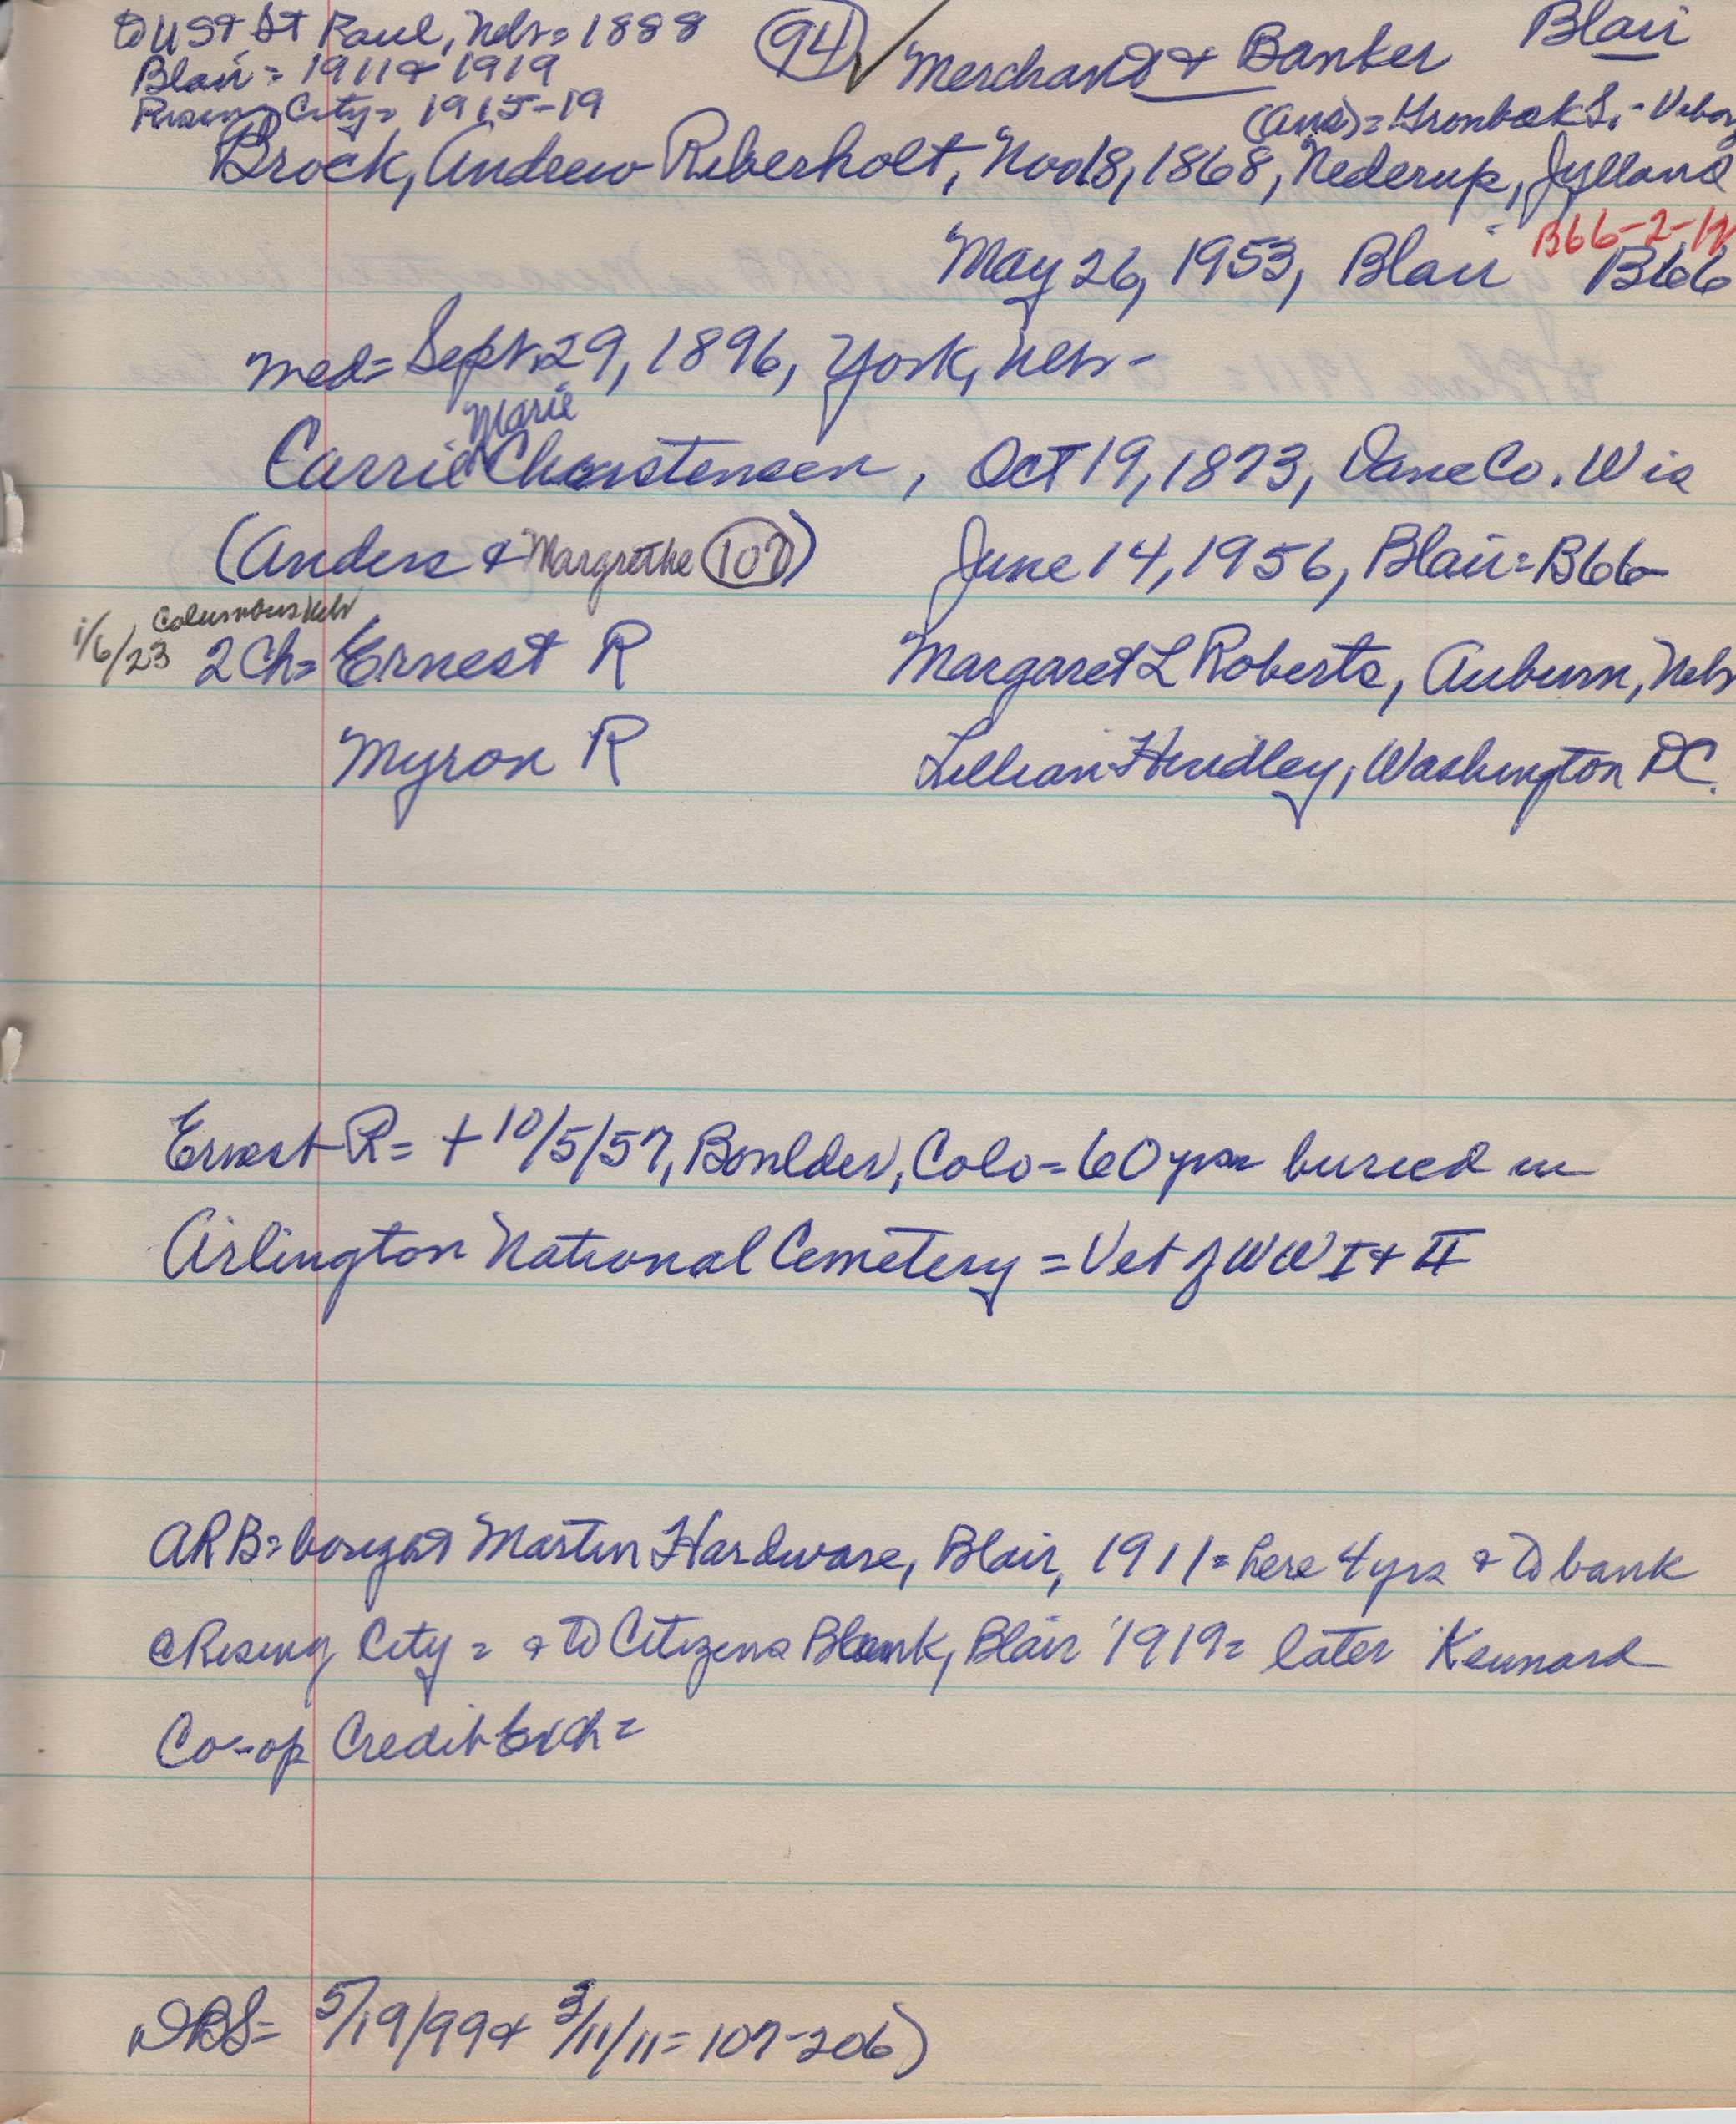 to US & St Paul, Nebr = 1888
(94) ✓ Merchant & Banker Blair
Blair = 1911 & 1919
Rising City = 1915-19
(Ans) = Gronbak S. - Viborg
Brock, Andrew Riberholt, Nov 18, 1868, Nederup, Jylland
B66-2-12
May 26, 1953, Blair B66
med = Sept. 29, 1896, York, Nebr -
Marie
Carrie Christensen, Oct 19, 1873, Dane Co. Wis
(Anders & Margrethe (107)) June 14, 1956, Blair = B66
Columbus Nebr
1/6/23 2 Ch = Ernest R Margaret L Roberts, Auburn, Nebr
Myron R Lillian Hindley, Washington DC.
Ernest R = + 10/5/57, Boulder, Colo = 60 yrs = buried in
Arlington National Cemetery = Vet of WW I & II
ARB = bought Martin Hardware, Blair, 1911 = here 4 yrs & to bank
@ Rising City = & to Citizens Bank, Blair 1919 = later Kennard
Co-op Credit Exch =
DBS = 5/19/99 & 3/11/11 = 107-206)